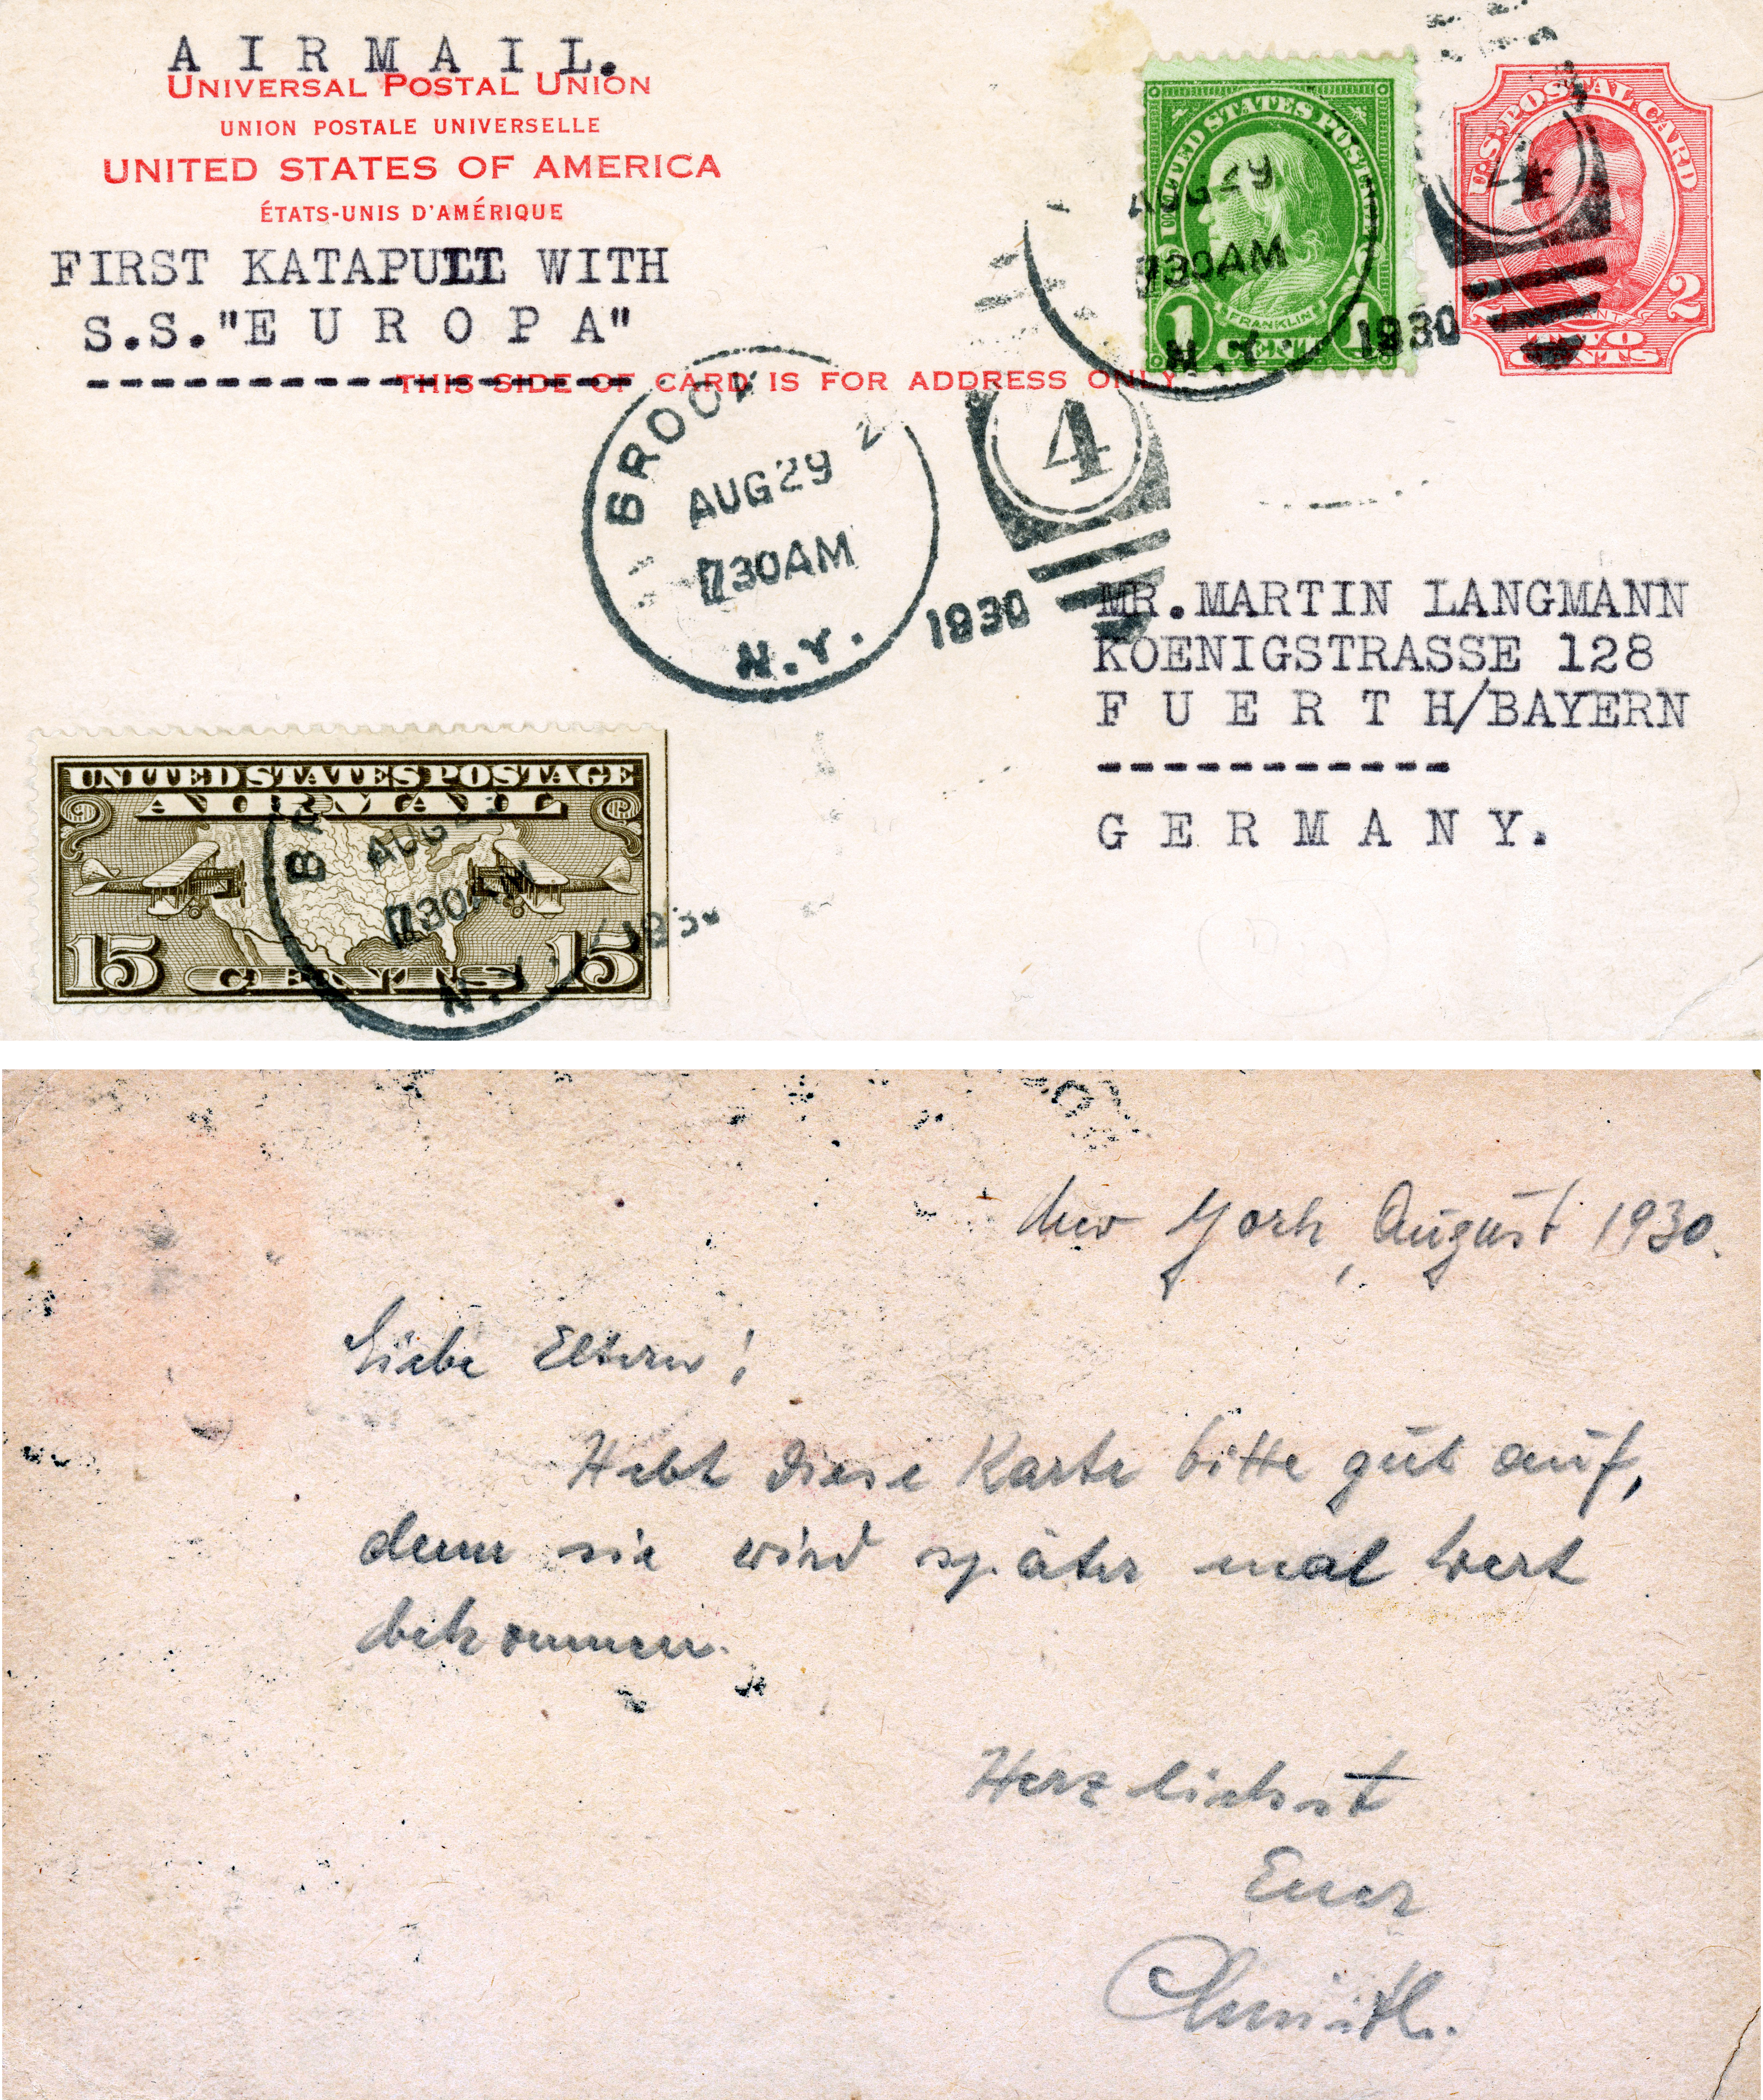 A I R M A I L.
UNIVERSAL POSTAL UNION
UNION POSTALE UNIVERSELLE
UNITED STATES OF AMERICA
ÉTATS-UNIS D'AMÉRIQUE
FIRST KATAPULT WITH
S.S."E U R O P A"
THIS SIDE OF CARD IS FOR ADDRESS ONLY
UNITED STATES POSTAGE
FRANKLIN
1 CENT 1
AUG 29
730AM
N.Y. 1930
U.S. POSTAL CARD
2 2
TWO
CENTS
4
AUG 29
730AM
N.Y. 1930
4
MR.MARTIN LANGMANN
KOENIGSTRASSE 128
F U E R T H/BAYERN
-----------
G E R M A N Y.
UNITED STATES POSTAGE
AIR MAIL
15 CENTS 15
AUG
730AM
N.Y.
New York, August 1930.
Liebe Eltern!
Hebt diese Karte bitte gut auf,
denn sie wird später mal Wert
bekommen.
Herzlichst
Euer